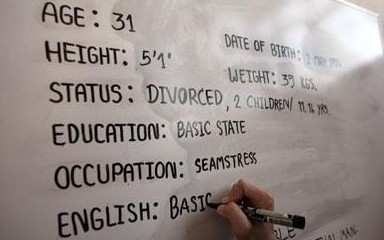 AGE: 31
DATE OF BIRTH: 7 MAY
HEIGHT: 5'1"
WEIGHT: 39 KGS.
STATUS: DIVORCED, 2 CHILDREN/ 11, 14 YRS
EDUCATION: BASIC STATE
OCCUPATION: SEAMSTRESS
ENGLISH: BASIC